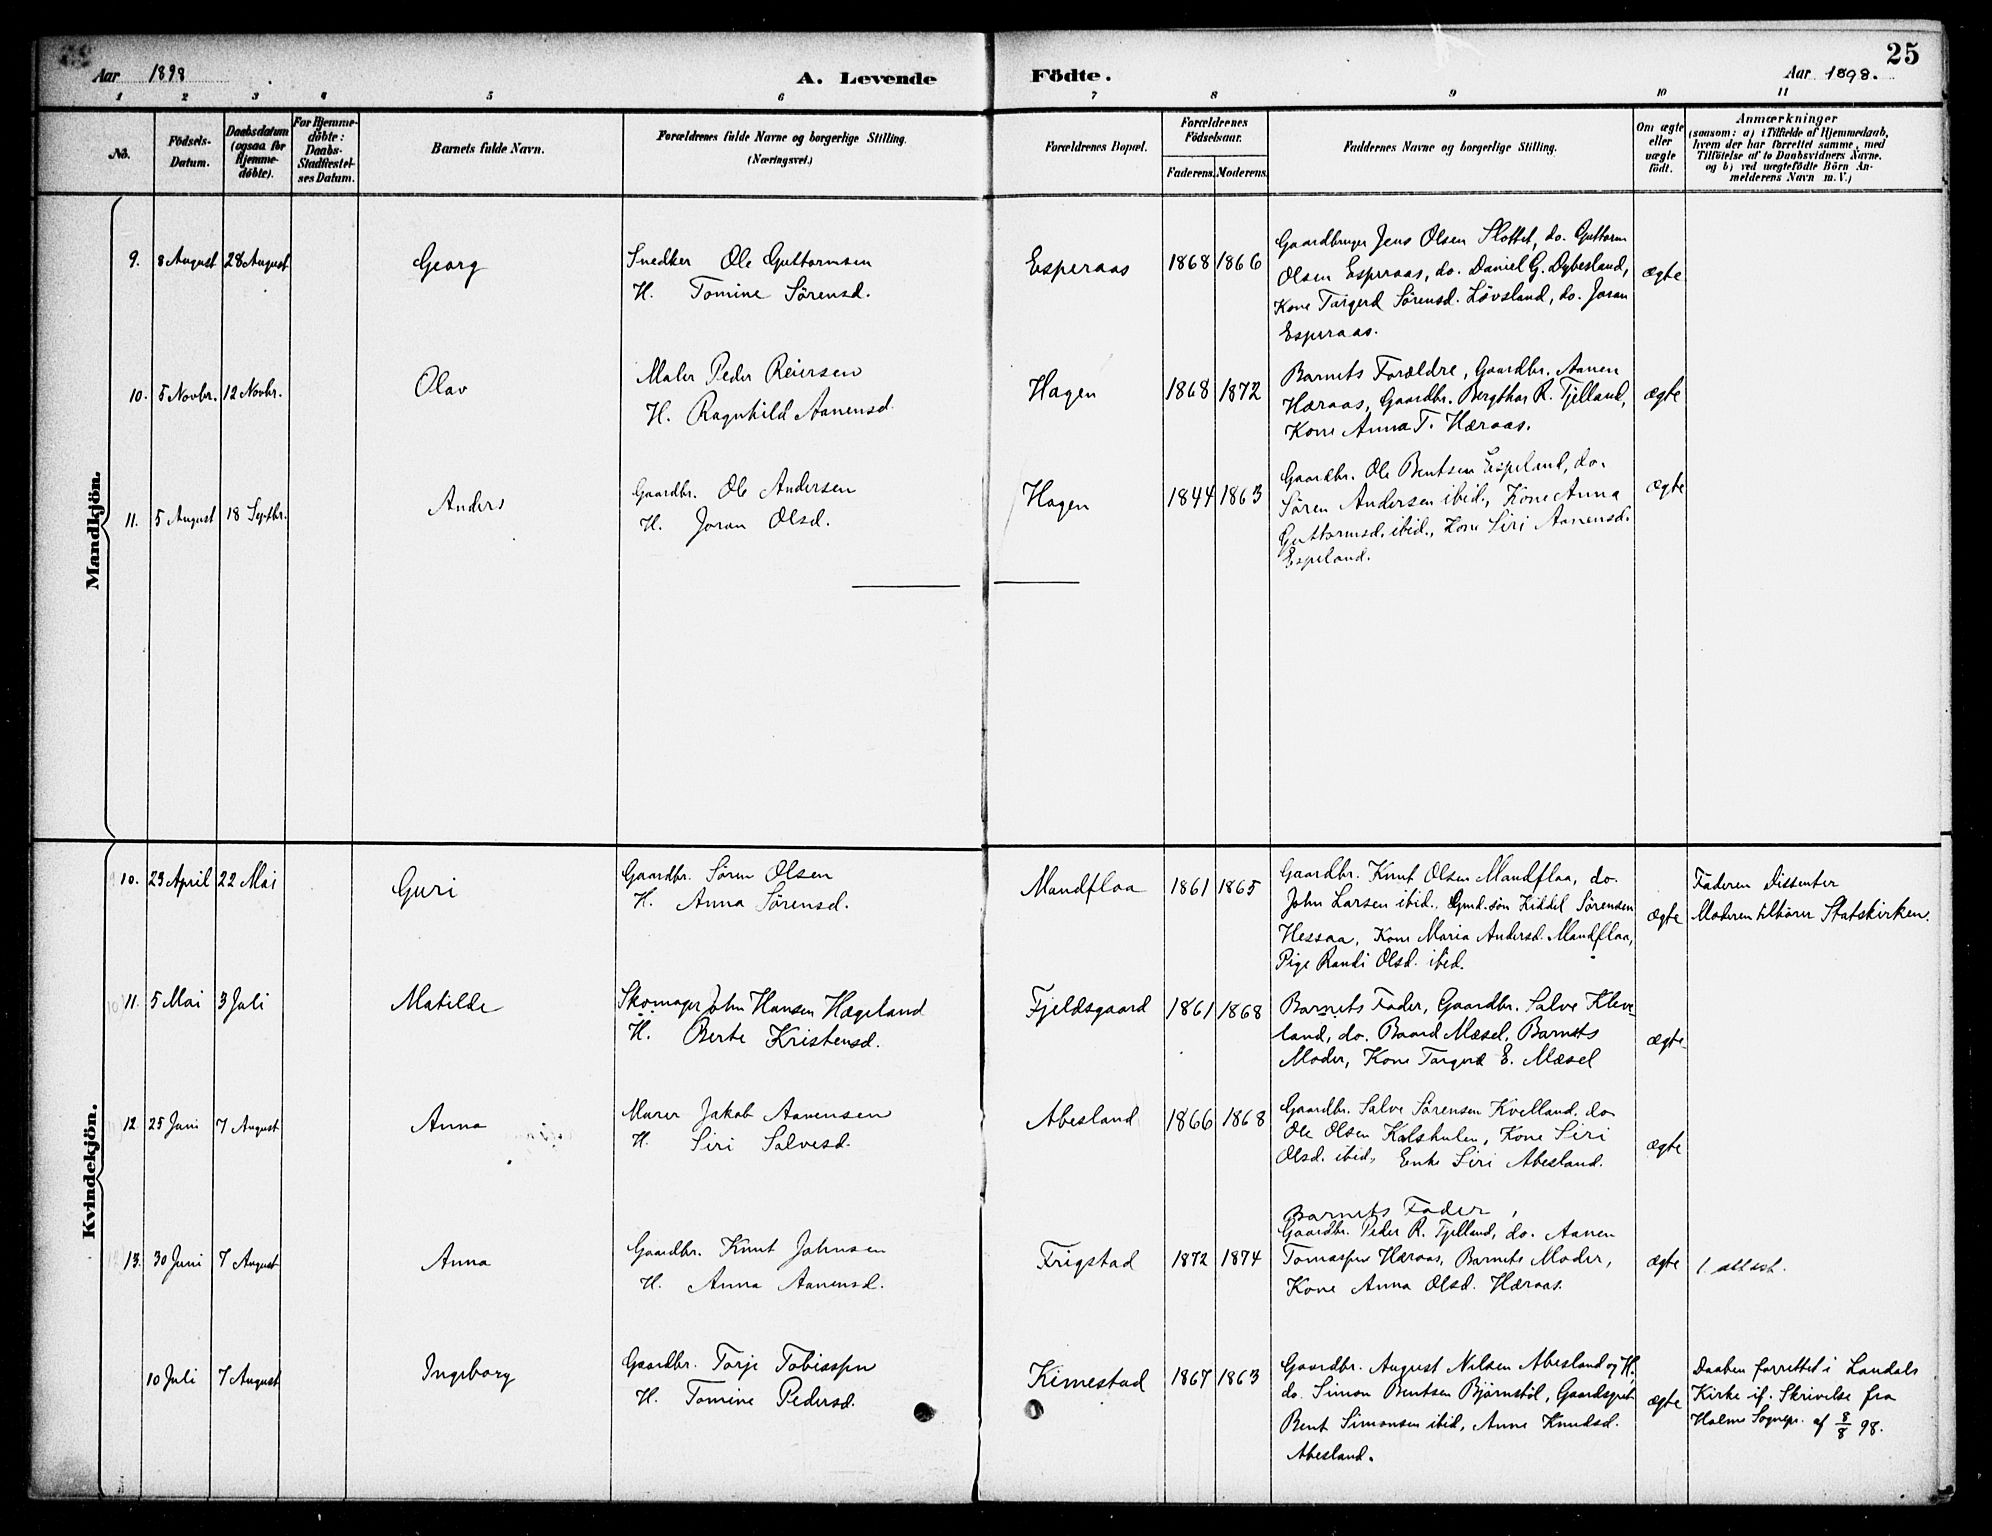 25
Aar 1898 A. Levende Födte. Aar 1898.
1 2 3 4 5 6 7 8 9 10 11
No.
Födsels-
Datum.
Daabsdatum
(ogsaa for
Hjemme-
døbte).
For Hjemme-
døbte:
Daabs-
Stadfæstel-
ses Datum.
Barnets fulde Navn.
Forældrenes fulde Navne og borgerlige Stilling.
(Næringsvei.)
Forældrenes Bopæl.
Forældrenes
Födselsaar.
Faderens. Moderens.
Faddernes Navne og borgerlige Stilling.
Om ægte
eller
uægte
födt.
Anmærkninger
(saasom: a) i Tilfælde af Hjemmedaab,
hvem der har forrettet samme, med
Tilföielse af to Daabsvidners Navne.
og b) ved uægtefödte Börn An-
melderens Navn m.V.)
Mandkjön.
9. 8 August 28 August Georg
Snedker Ole Guttormsen
H. Tomine Sörensd.
Esperaas 1868 1866
Gaardbruger Jens Olsen Slottet, do. Guttorm
Olsen Esperaas, do. Daniel G. Dybesland,
Kone Targerd Sörensd. Lövsland, do. Joran
Esperaas.
ægte
10. 5 Novbr. 12 Novbr. Olav
Maler Peder Reiersen
H. Ragnhild Aanensd.
Hagen 1868 1872
Barnets Forældre, Gaardbr. Aanen
Hæraas, Gaardbr. Bergthor R. Tjelland,
Kone Anna T. Hæraas.
ægte
11. 5 August 18 Septbr. Anders
Gaardbr. Ole Andersen
H. Joran Olsd.
Hagen 1844 1863
Gaardbr. Ole Bentsen Espeland, do.
Sören Andersen ibid., Kone Anna
Guttormsd. ibid., Kone Siri Aanensd.
Espeland.
ægte
Kvindekjön.
10. 23 April 22 Mai Guri
Gaardbr. Sören Olsen
H. Anna Sörensd.
Mandflaa 1861 1865
Gaardbr. Knut Olsen Mandflaa, do.
John Larsen ibid., Gmd. sön Kiddel Sörensen
Hessaa, Kone Maria Andersd. Mandflaa,
Pige Randi Olsd. ibid.
ægte
Faderen Dissenter
Moderen tilhörer Statskirken.
11. 5 Mai 3 Juli Matilde
Skomager John Hansen Hægeland
H. Berte Kristensd.
Fjeldsgaard 1861 1868
Barnets Fader, Gaardbr. Salve Kleve-
land, do. Baard Mæsel, Barnets
Moder, Kone Targerd E. Mæsel
ægte
12 25 Juni 7 August Anna
Murer Jakob Aanensen
H. Siri Salvesd.
Abesland 1866 1868
Gaardbr. Salve Sörensen Kvelland, do
Ole Olsen Kalshulen, Kone Siri
Olsd. ibid., Enke Siri Abesland.
ægte
13. 30 Juni 7 August Anna
Gaardbr. Knut Johnsen
H. Anna Aanensd.
Frigstad 1872 1874
Barnets Fader,
Gaardbr. Peder R. Tjelland, do. Aanen
Tomassen Hæraas, Barnets Moder,
Kone Anna Olsd. Hæraas.
ægte
1. attest.
10 Juli 7 August Ingeborg
Gaardbr. Torje Tobiassen
H. Tomine Pedersd.
Kimestad 1867 1863
Gaardbr. August Nilsen Abesland og H.,
do. Simon Bentsen Björnstöl, Gaardsgut
Bent Simonsen ibid, Anne Knudsd.
Abesland.
ægte
Daaben forrettet i Laudals
Kirke if. Skrivelse fra
Holme Sognepr. af 8/8 98.